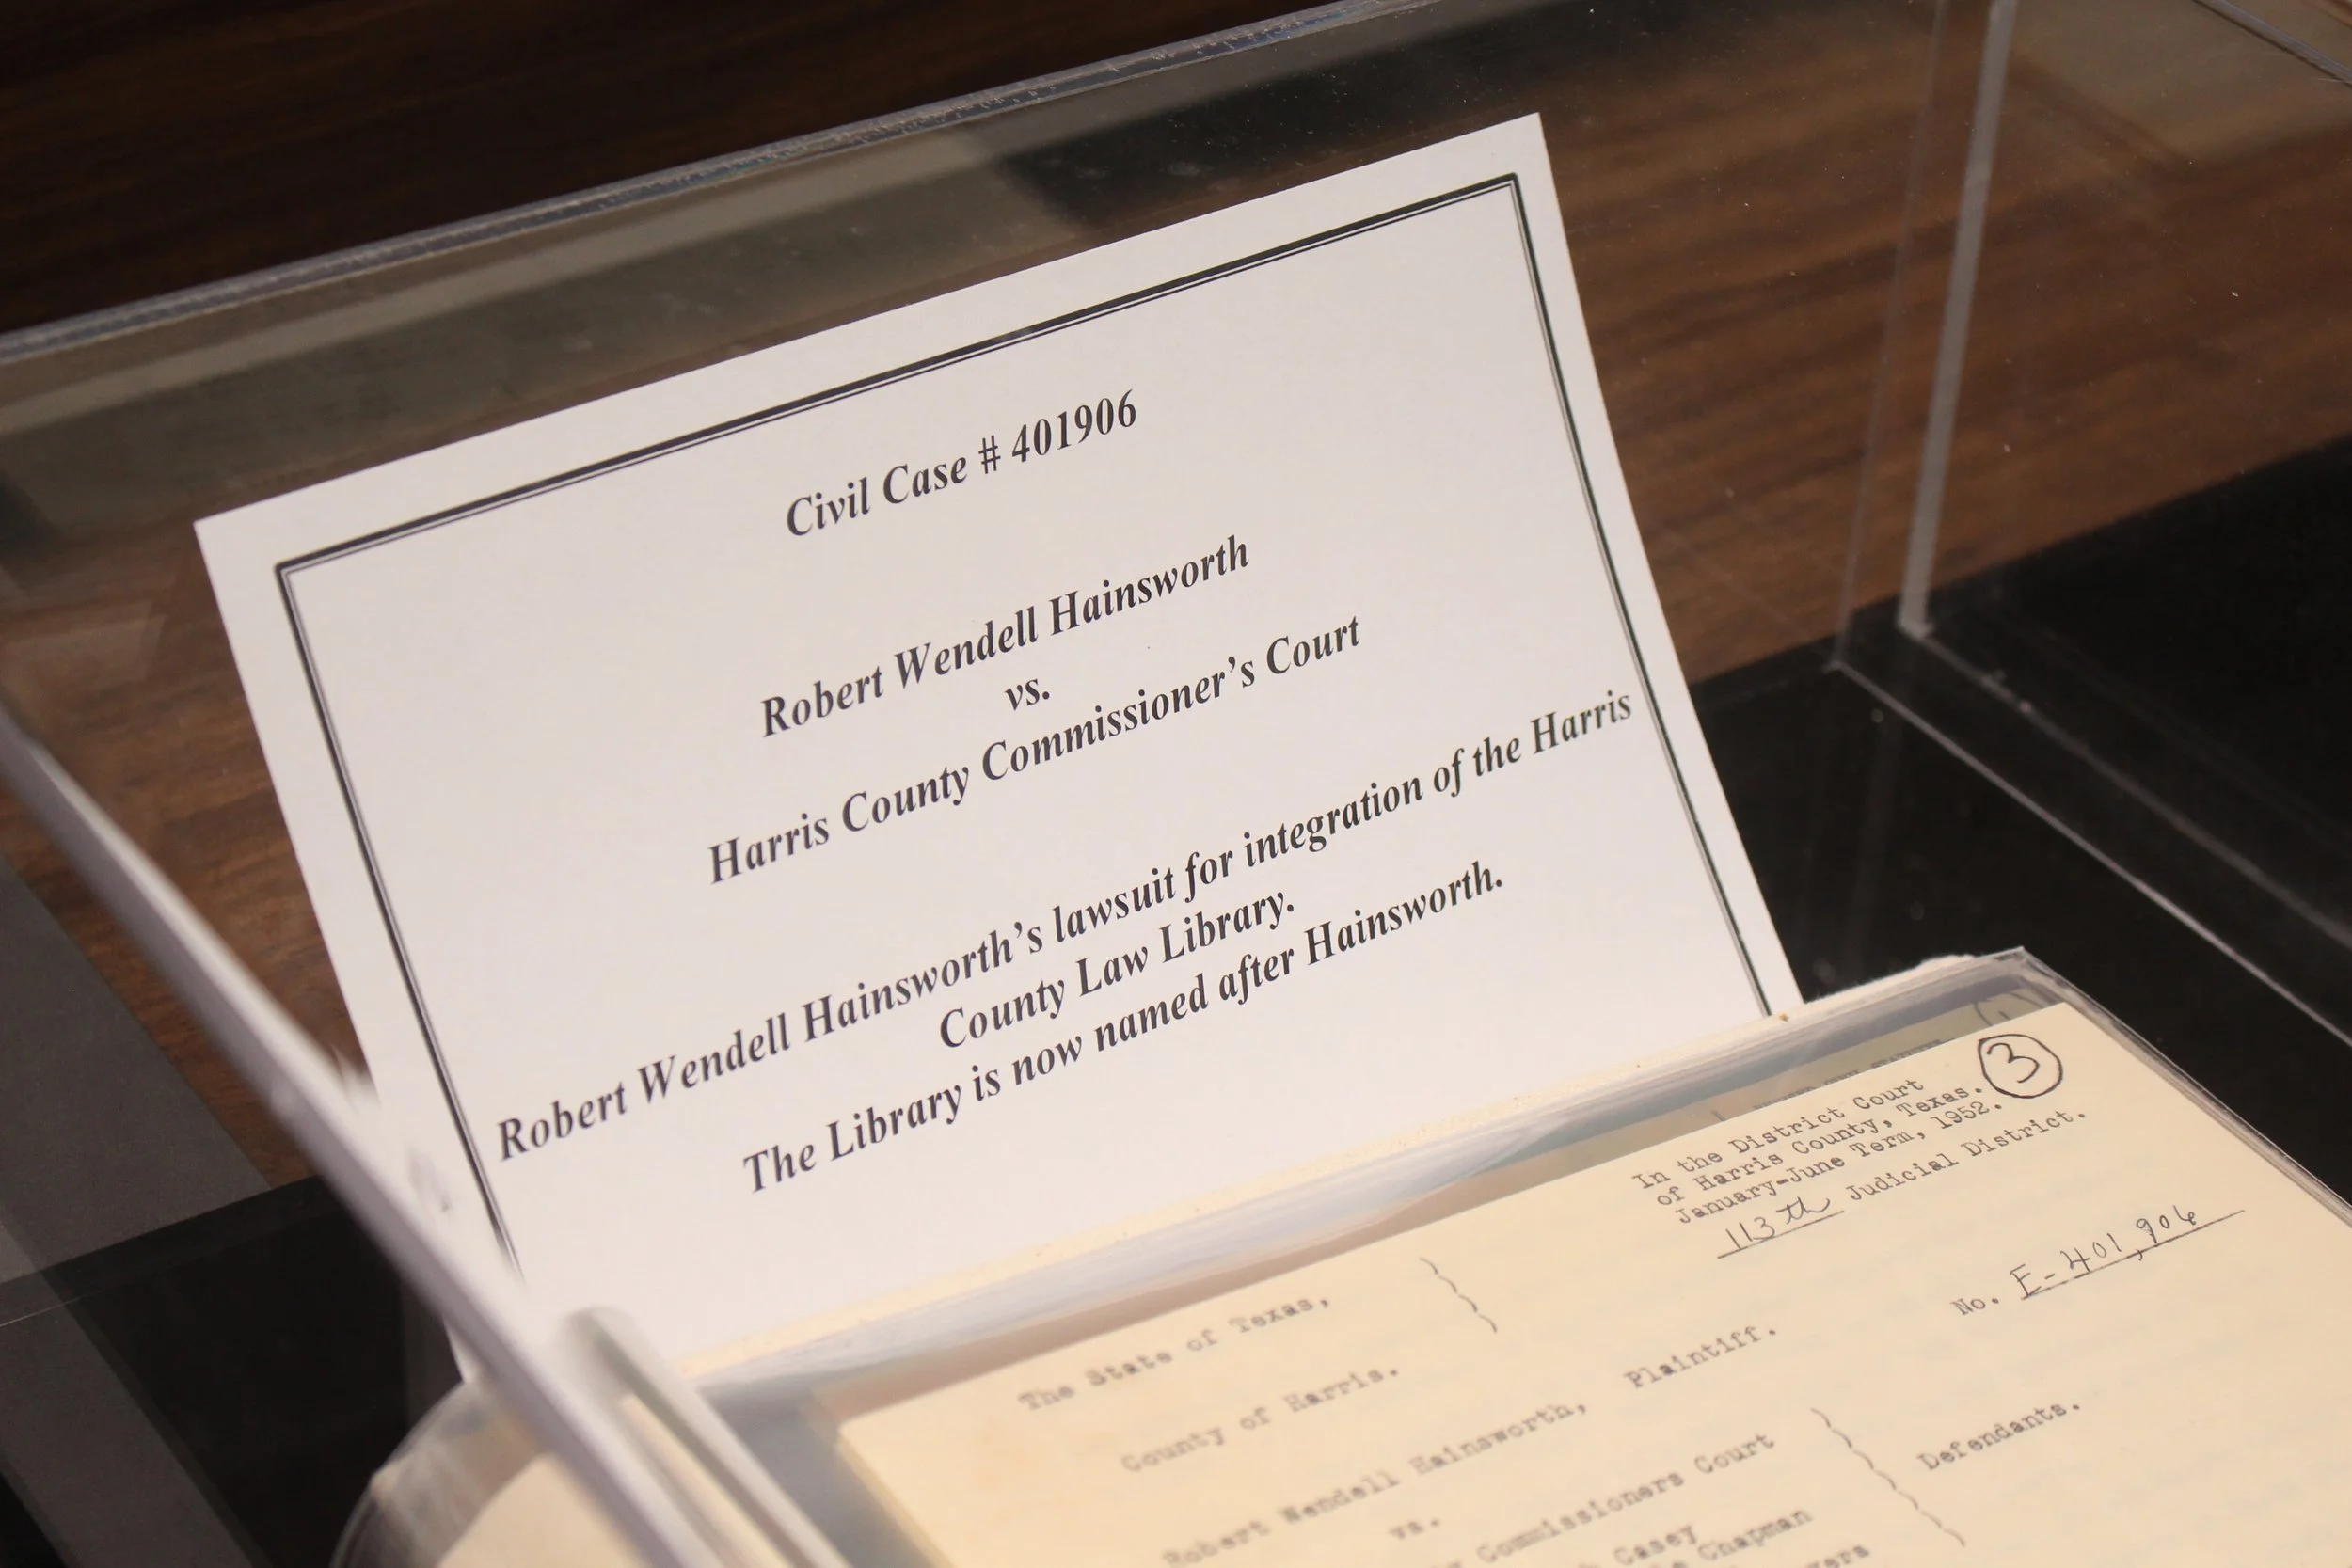 Civil Case # 401906
Robert Wendell Hainsworth
vs.
Harris County Commissioner’s Court
Robert Wendell Hainsworth’s lawsuit for integration of the Harris
County Law Library.
The Library is now named after Hainsworth.
3
In the District Court
of Harris County, Texas.
January-June Term, 1952.
113th Judicial District.
No. E-401,906
The State of Texas,
County of Harris.
Robert Wendell Hainsworth, Plaintiff.
vs.
Commissioners Court
Defendants.
Casey
Chapman